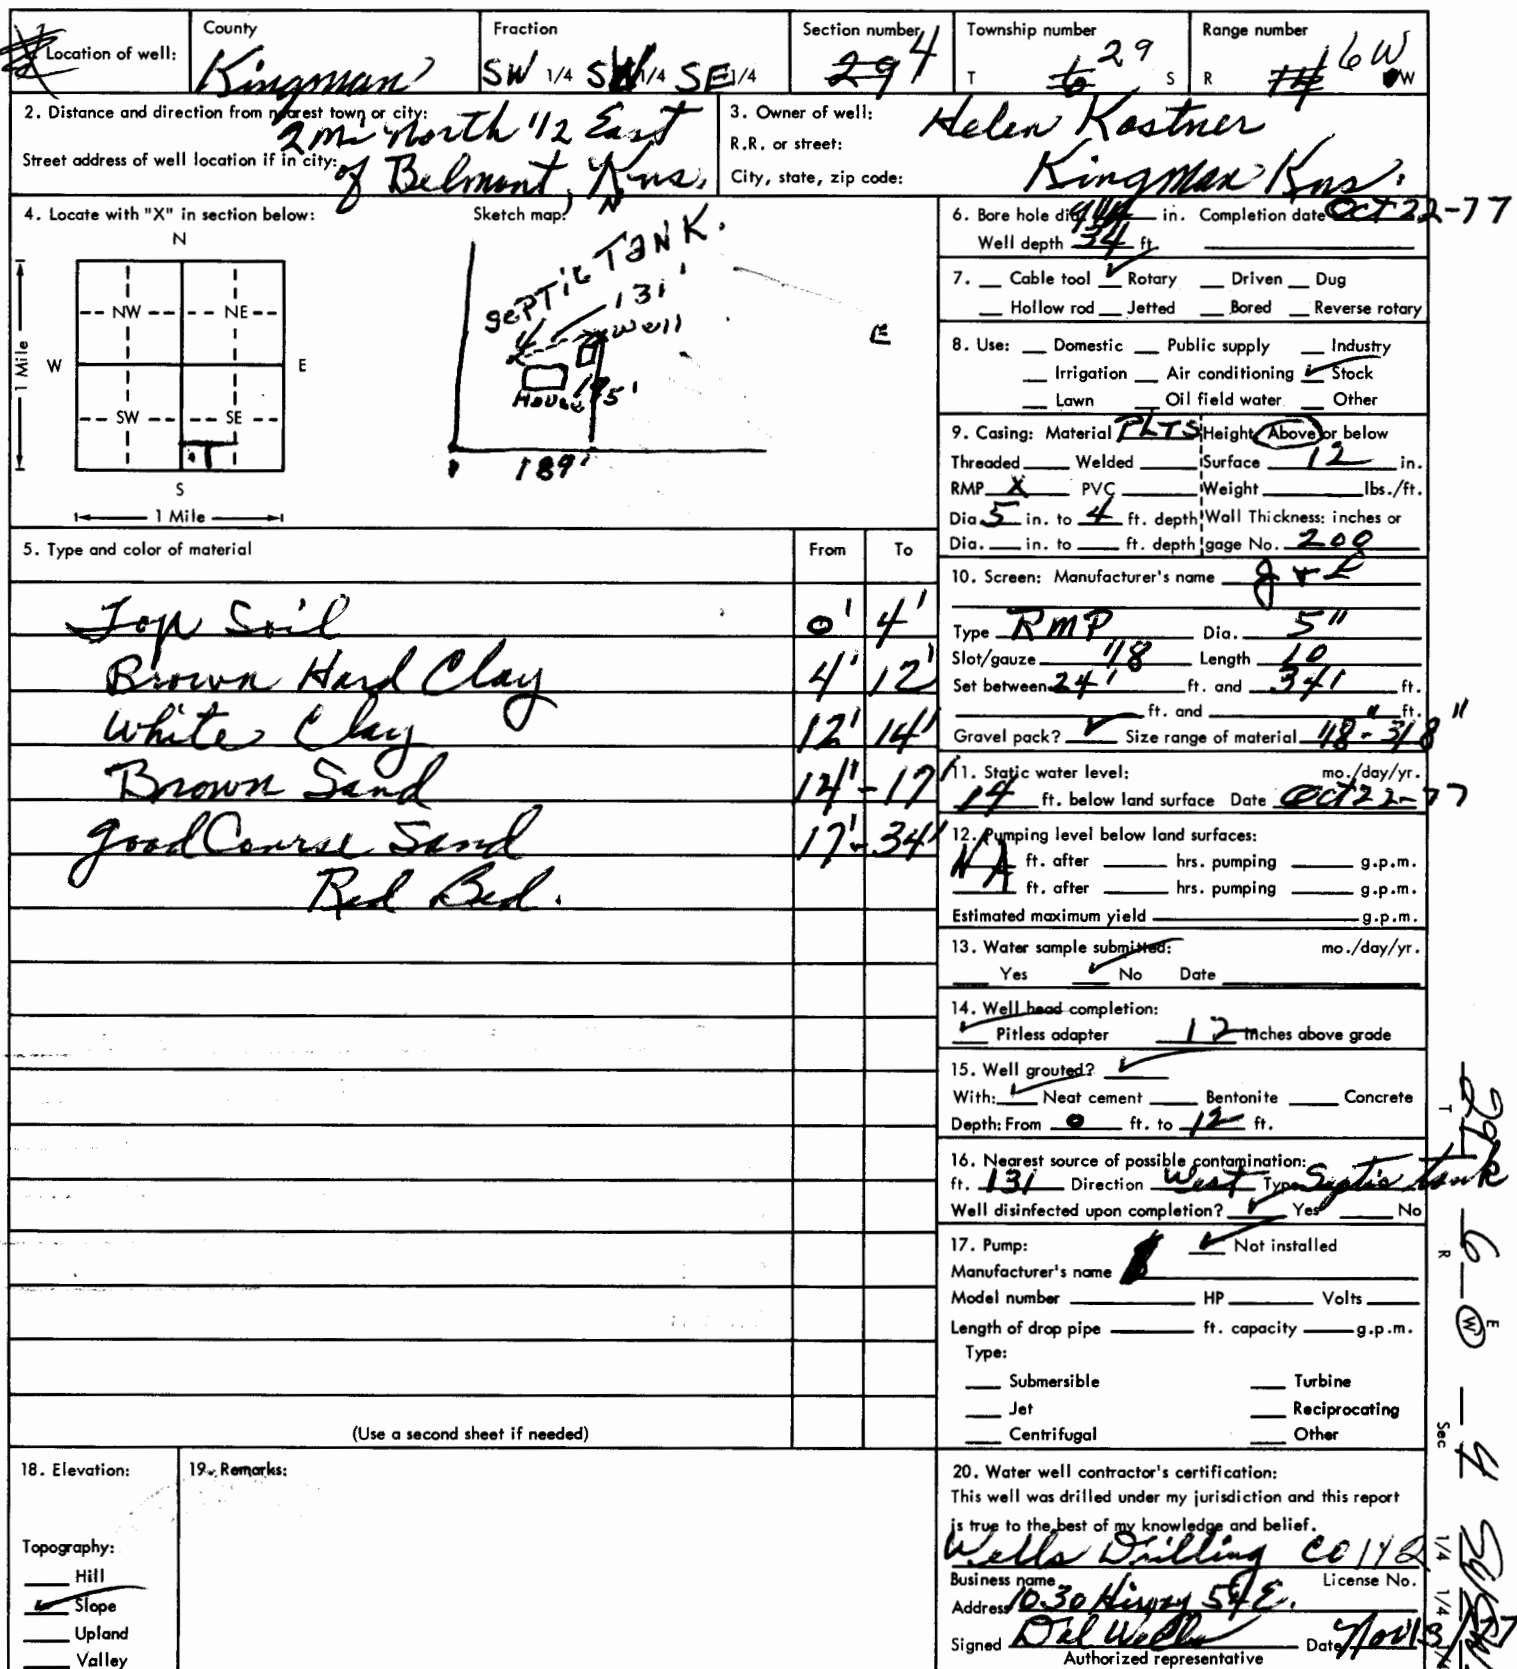 Location of well:
County
Kingman
Fraction
SW 1/4 SW 1/4 SE 1/4
Section number
29 4
Township number
T 6 29 S
Range number
R 6W W
2. Distance and direction from nearest town or city:
2 mi North 1/2 East
Street address of well location if in city:
of Belmont, Kns.
3. Owner of well: Helen Kostner
R.R. or street:
City, state, zip code: Kingman Kns.
4. Locate with "X" in section below:
N
NW NE
W E
SW SE
S
1 Mile
1 Mile
Sketch map:
N
SEPTIC TANK.
131'
Well
E
House
195'
189'
5. Type and color of material From To
Top Soil 0' 4'
Brown Hard Clay 4' 12'
White Clay 12' 14'
Brown Sand 14' - 17'
good Coarse Sand 17' - 34'
Red Bed.
(Use a second sheet if needed)
6. Bore hole dia. in. Completion date Oct 22-77
Well depth 34 ft.
7. Cable tool ✓ Rotary Driven Dug
Hollow rod Jetted Bored Reverse rotary
8. Use: Domestic Public supply Industry
Irrigation Air conditioning ✓ Stock
Lawn Oil field water Other
9. Casing: Material PLTS Height: Above or below
Threaded Welded Surface 12 in.
RMP X PVC Weight lbs./ft.
Dia. 5 in. to 4 ft. depth Wall Thickness: inches or
Dia. in. to ft. depth gage No. 200
10. Screen: Manufacturer's name
Type RMP Dia. 5"
Slot/gauze 1/8 Length 10
Set between 24' ft. and 34' ft.
ft. and ft.
Gravel pack? ✓ Size range of material 1/8"-3/8"
11. Static water level: mo./day/yr.
14 ft. below land surface Date Oct 22-77
12. Pumping level below land surfaces:
NA ft. after hrs. pumping g.p.m.
ft. after hrs. pumping g.p.m.
Estimated maximum yield g.p.m.
13. Water sample submitted: mo./day/yr.
Yes ✓ No Date
14. Well head completion:
✓ Pitless adapter 12 Inches above grade
15. Well grouted? ✓
With: ✓ Neat cement Bentonite Concrete
Depth: From 0 ft. to 12 ft.
16. Nearest source of possible contamination:
ft. 131 Direction West Type Septic tank
Well disinfected upon completion? ✓ Yes No
17. Pump: ✓ Not installed
Manufacturer's name
Model number HP Volts
Length of drop pipe ft. capacity g.p.m.
Type:
Submersible Turbine
Jet Reciprocating
Centrifugal Other
18. Elevation:
Topography:
Hill
✓ Slope
Upland
Valley
19. Remarks:
20. Water well contractor's certification:
This well was drilled under my jurisdiction and this report
is true to the best of my knowledge and belief.
Wells Drilling Co 142
Business name License No.
Address 1030 Hiway 54 E.
Signed Del Wells Date Nov
Authorized representative
T 29 R 6 E W Sec 4 1/4 1/4